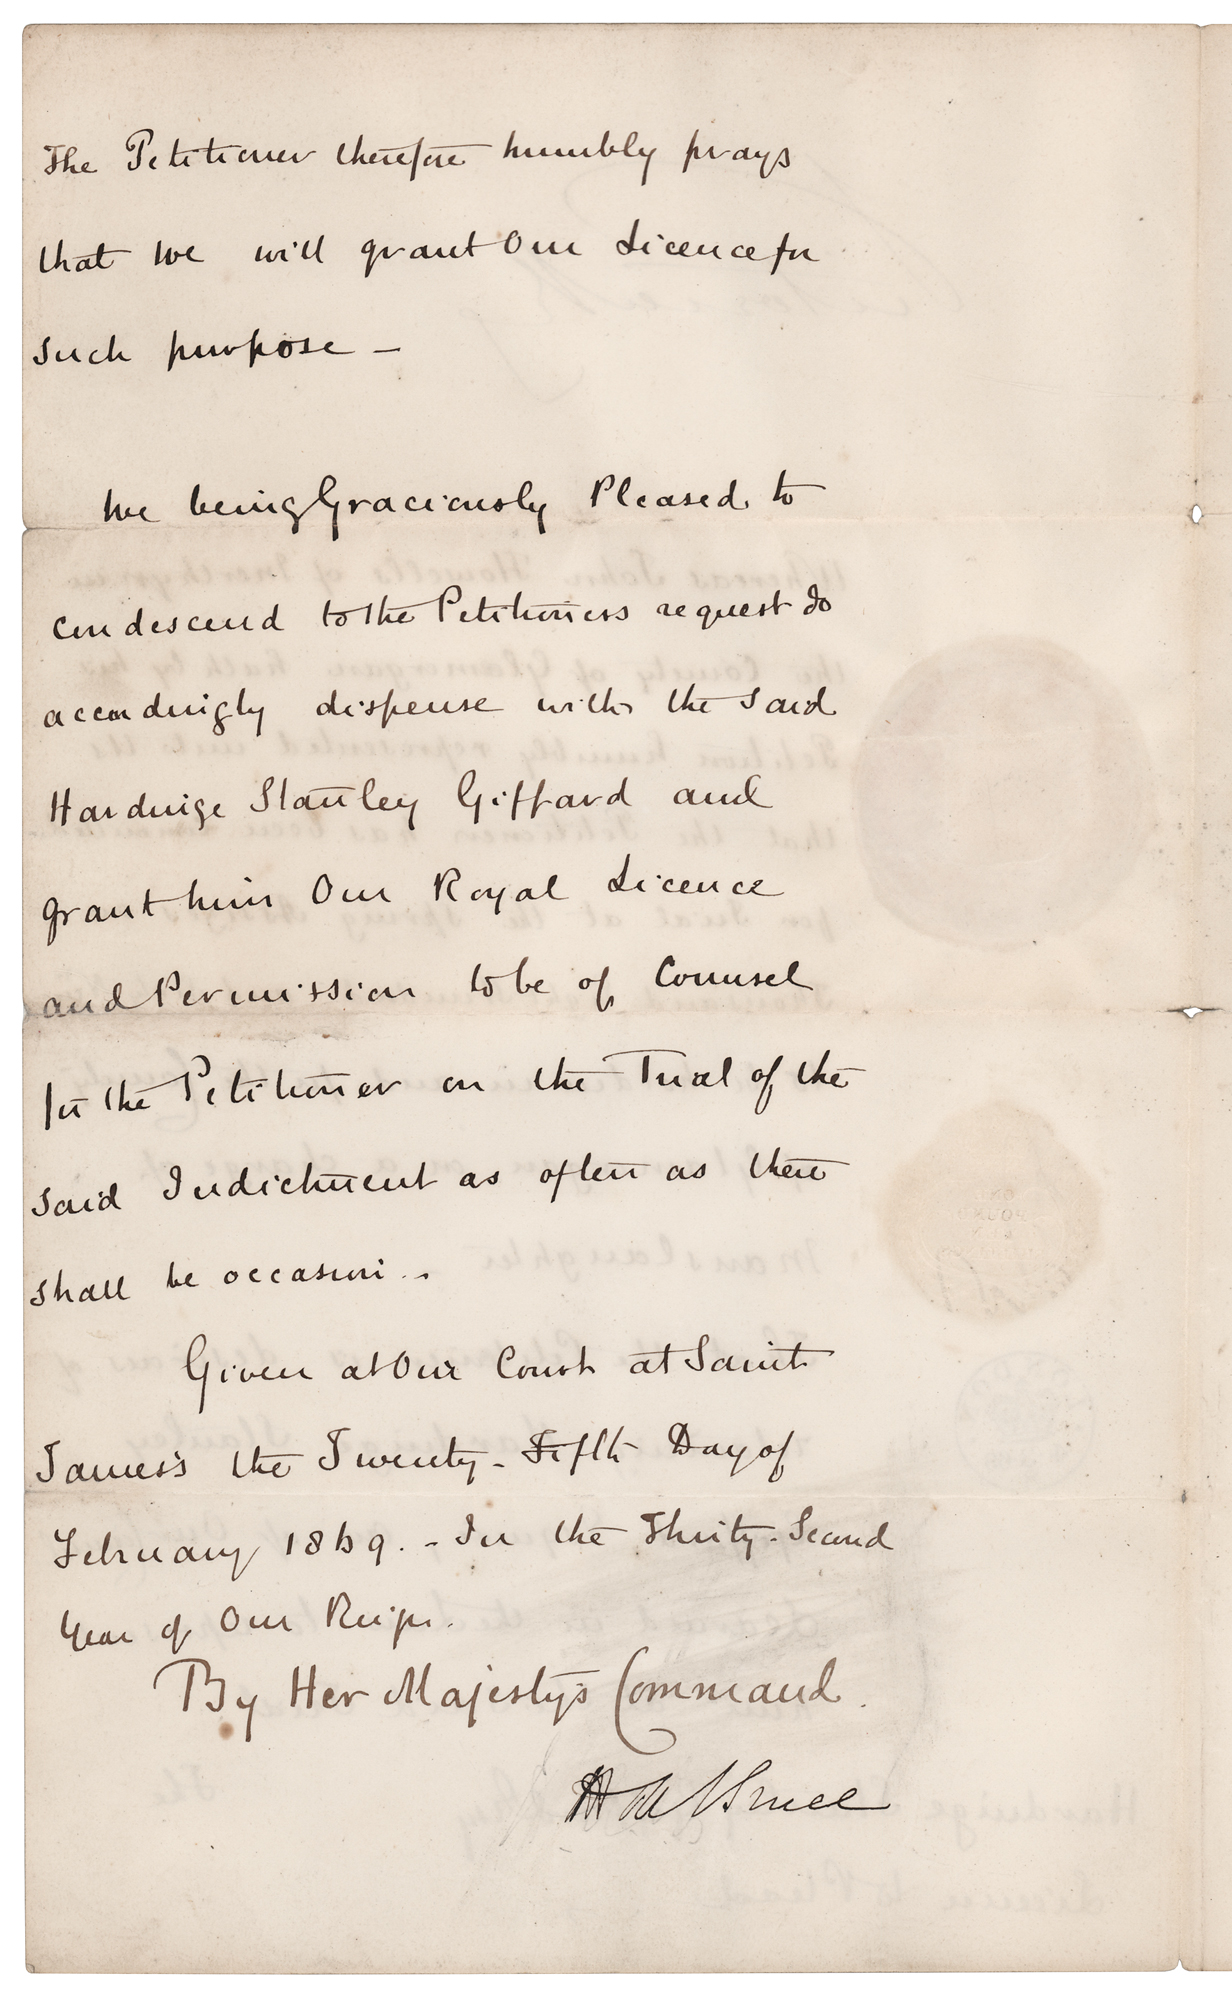 The Petitioner therefore humbly prays
that We will grant Our Licence for
such purpose —
We being Graciously Pleased to
condescend to the Petitioners request do
accordingly dispense with the said
Hardinge Stanley Giffard and
grant him Our Royal Licence
and Permission to be of Counsel
for the Petitioner on the Trial of the
said Indictment as often as there
shall be occasion. -
Given at Our Court at Saint
James's the Twenty-Fifth Day of
February 1869. - In the Thirty-Second
Year of Our Reign.
By Her Majesty's Command.
H A Bruce